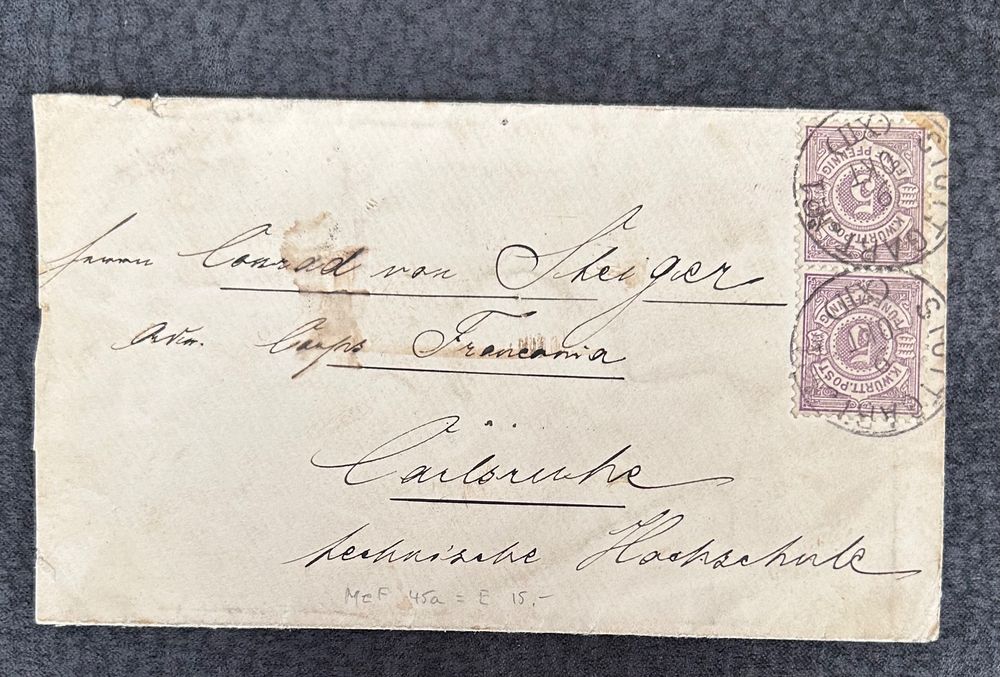 Herrn Conrad von Steiger
Adr. Corps Franconia
Carlsruhe
technische Hochschule
MeF 45a = E 15,-
K.WÜRTT.POST
FÜNF PFENNIG
5
K.WÜRTT.POST
FÜNF PFENNIG
5
STUTTGART
STUTTGART